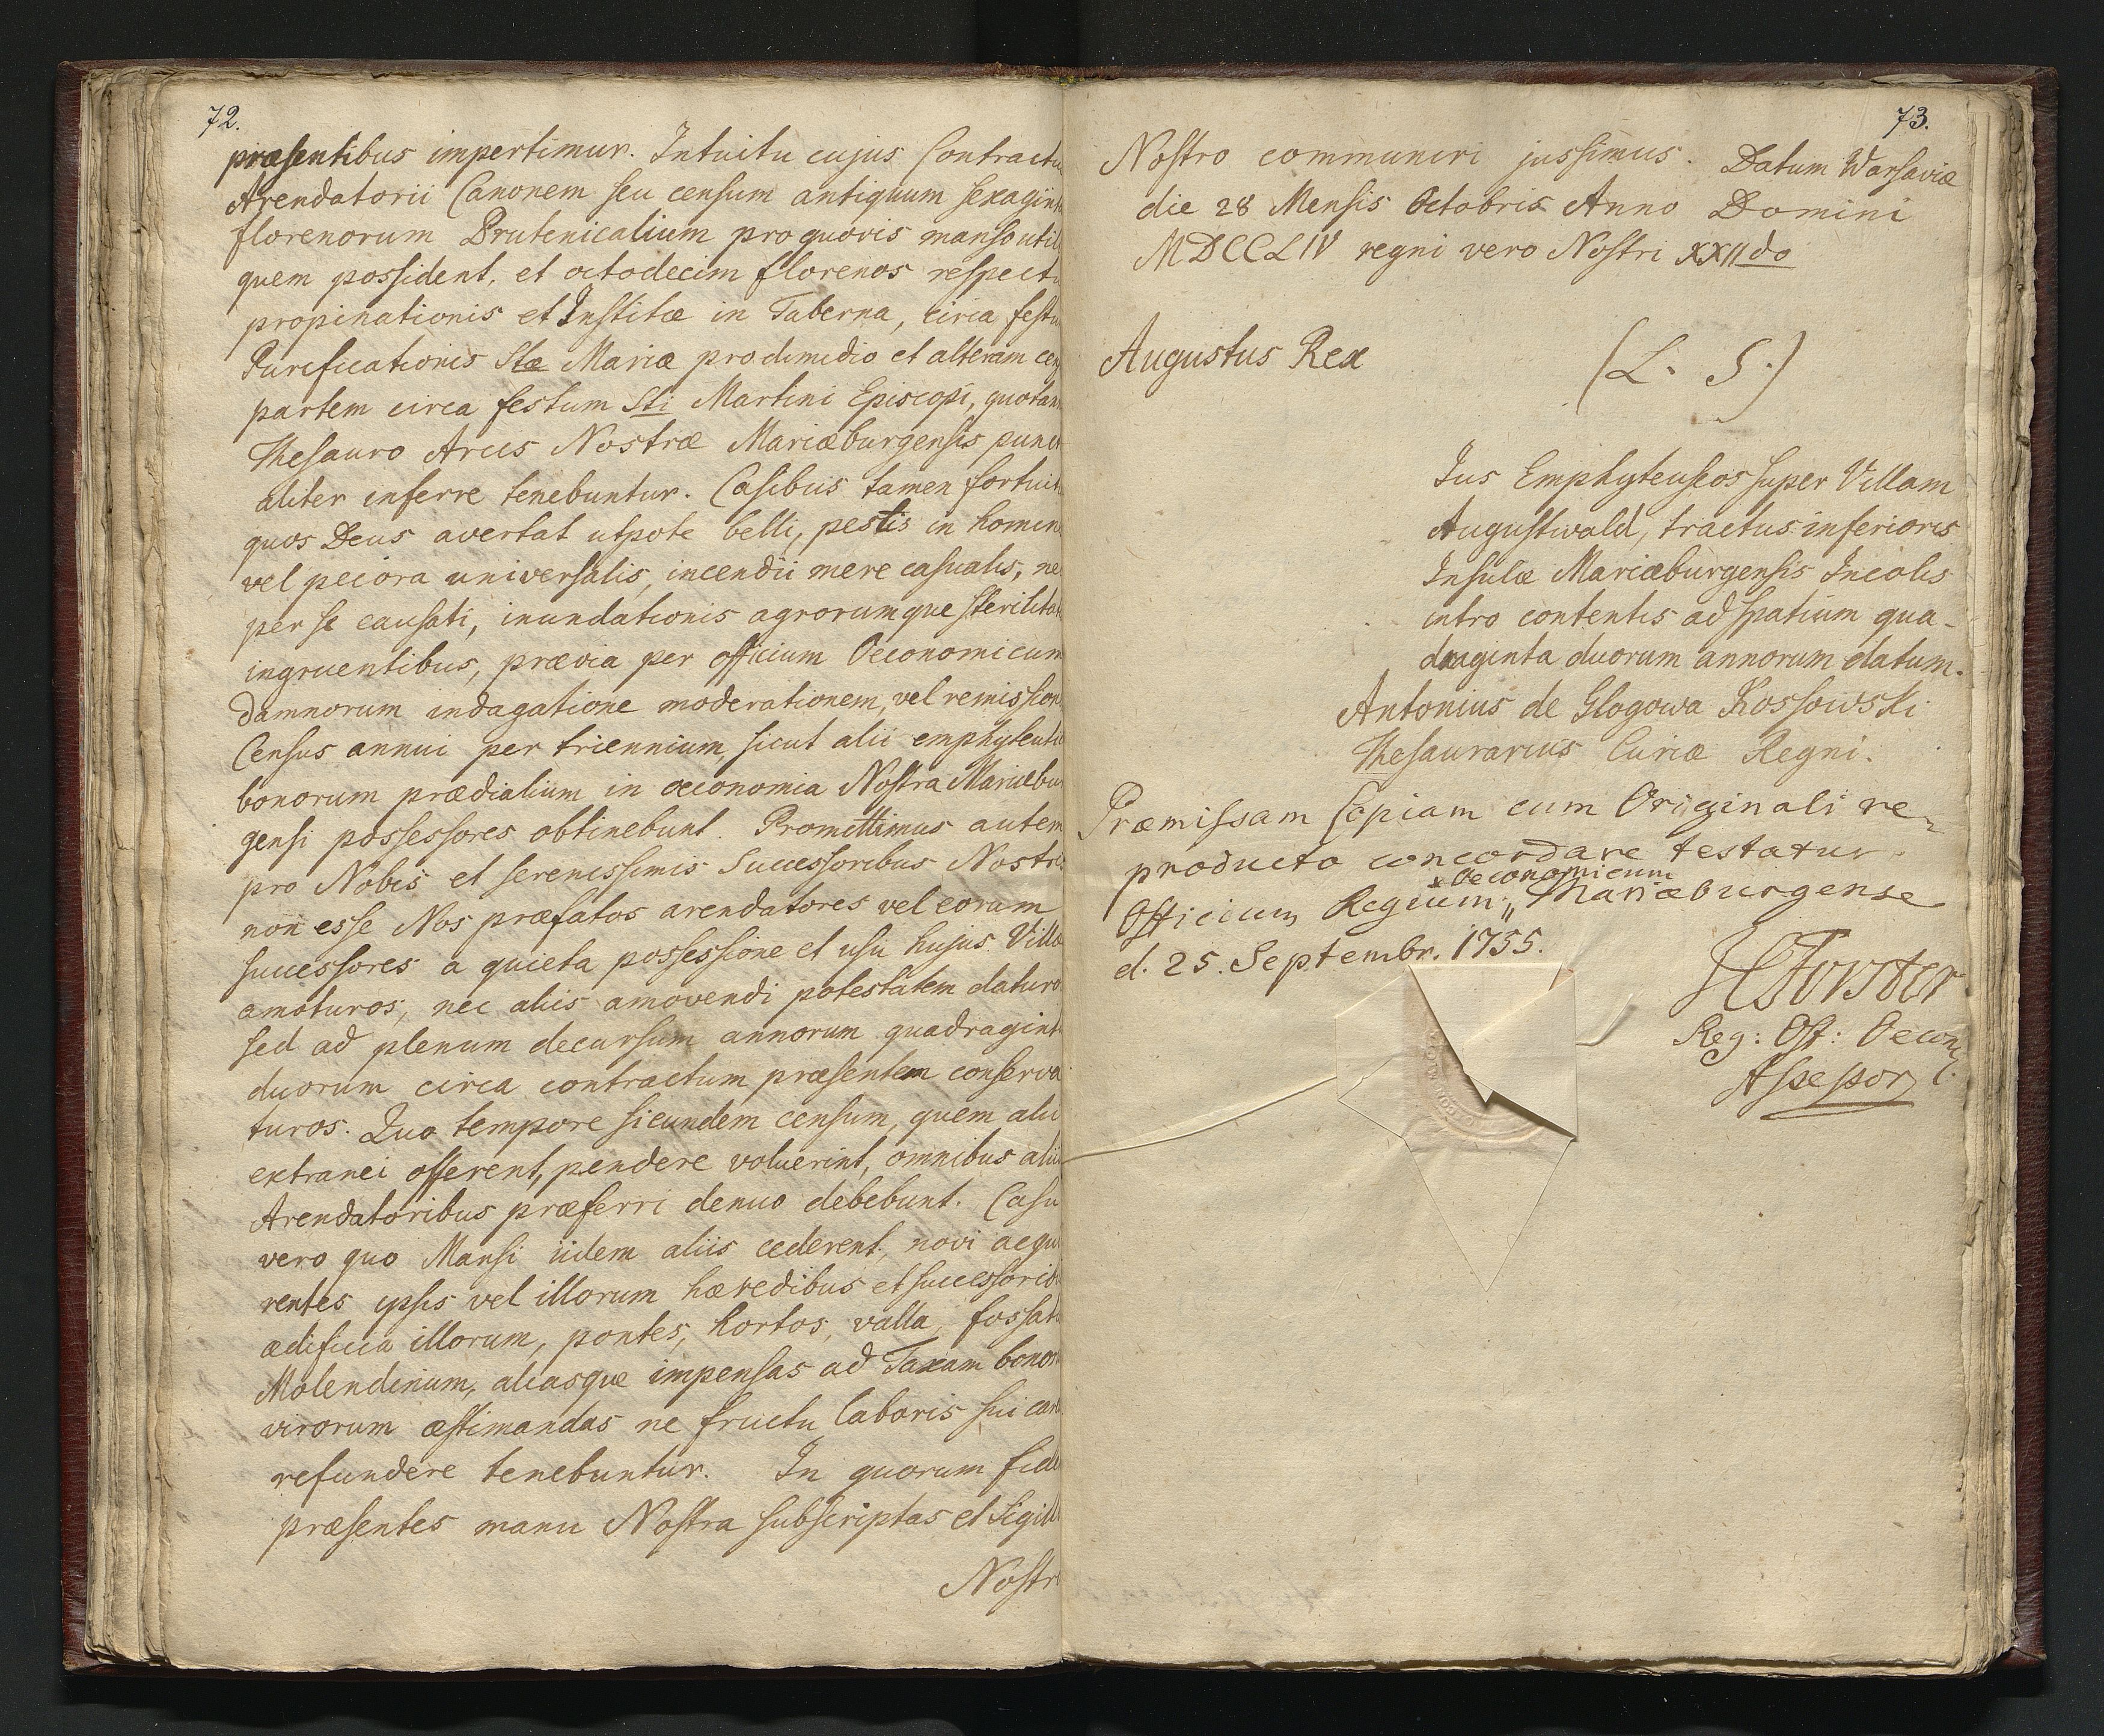 72.
præsentibus impertimur. Intuitu cujus Contractu
Arendatorii Canonem seu censum antiquum sexagint
florenorum Prutenicalium pro quovis manso util
quem possident, et octodecim florenos respectu
propinationis et Institæ in Taberna, circa festu
Purificationis Stæ Mariæ pro dimidio et alteram
partem circa festum Sti Martini Episcopi, quotan
Thesauro Arcis Nostræ Mariæburgensis punct
aliter inferre tenebuntur. Casibus tamen fortuit
quos Deus avertat utpote belli, pestis in homin
vel pecora universalis, incendii mere casualis, ne
per se causati, inundationis agrorumque sterilitat
ingruentibus, prævia per officium Oeconomicum
damnorum indagatione moderationem, vel remission
Census annui per triennium, sicut alii emphyteuti
bonorum prædialium in œconomia Nostra Mariæbur
gensi possessores obtinebunt. Promittimus autem
pro Nobis et serenissimis Successoribus Nostris
non esse Nos præfatos arendatores vel eorum
successores a quieta possessione et usu hujus Villæ
amoturos, nec aliis amovendi potestatem daturo
sed ad plenum decursum annorum quadragint
duorum circa contractum præsentem conserva
turos. Quo tempore si eundem censum, quem alii
extranei offerent, pendere voluerint, omnibus aliis
Arendatoribus præferri denuo debebunt. Casu
vero quo Mansi iidem aliis cederent, novi acqui
rentes ipsis vel illorum hæredibus et successorib
ædificia illorum, pontes, hortos, valla, fossat
Molendinum, aliasque impensas ad Taxam bonor
virorum æstimandas ne fructu laboris sui car
refundere tenebuntur. In quorum fide
præsentes manu Nostra subscriptas et Sigill
Nostr
73.
Nostro communiri jussimus. Datum Warsaviæ
die 28 Mensis Octobris Anno Domini
MDCCLIV regni vero Nostri XXIIdo
Augustus Rex (L. S.)
Jus Emphyteuseos super Villam
Augustwald, tractus inferioris
Insulæ Mariæburgensis Incolis
intro contentis ad spatium qua-
draginta duorum annorum datum.
Antonius de Glogowa Kossowski
Thesaurarius Curiæ Regni.
Præmissam Copiam cum Originali re-
producto concordare testatur
* Oeconomicum
Officium Regium " Mariæburgense
d. 25. Septembr. 1755.
Forster
Reg: Off: Oecon:
Assessor